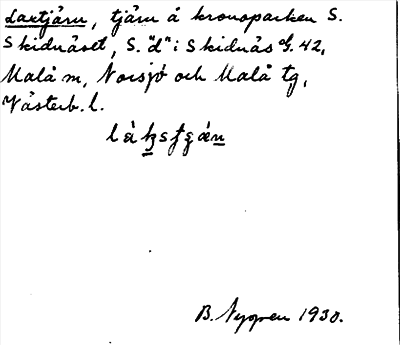 Laxtjärn, tjärn å kronoparken S.
Skidnäset, S. "d" i Skidnäs af. 42,
Malå m, Norsjö och Malå tg,
Västerb. l.
B. Nygren 1930.